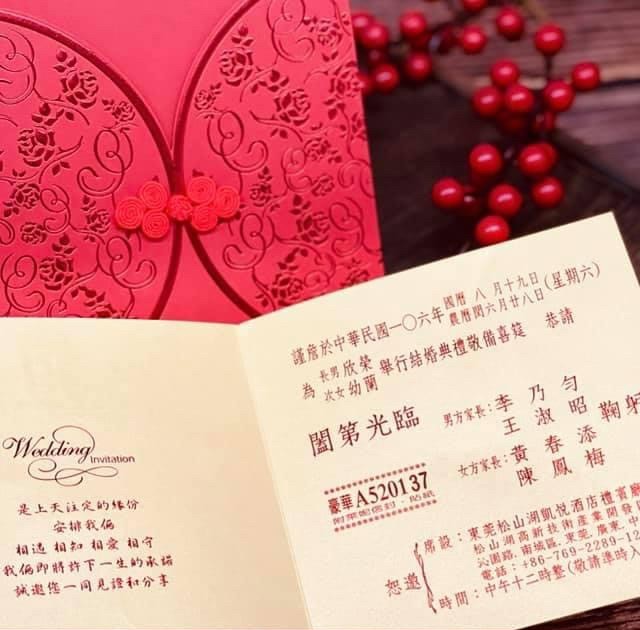 Wedding
Invitation
是上天注定的緣份
安排我倆
相遇 相知 相愛 相守
我倆即將許下一生的承諾
誠邀您一同見證和分享
謹詹於中華民國一〇六年國曆 八 月十九日(星期六)
農曆閏六月廿八日
為 長男 欣榮 舉行結婚典禮敬備喜筵 恭請
次女 幼蘭
闔第光臨
男方家長：李乃勻
王淑昭
女方家長：黃春添
陳鳳梅
鞠躬
豪華A520137
附萊妮信封．貼紙
恕邀
席設：東莞松山湖凱悅酒店禮賓廳
松山湖高新技術產業開發區
沁園路, 南城區, 東莞, 廣東,
電話：+86-769-2289-12
時間：中午十二時整(敬請準時)